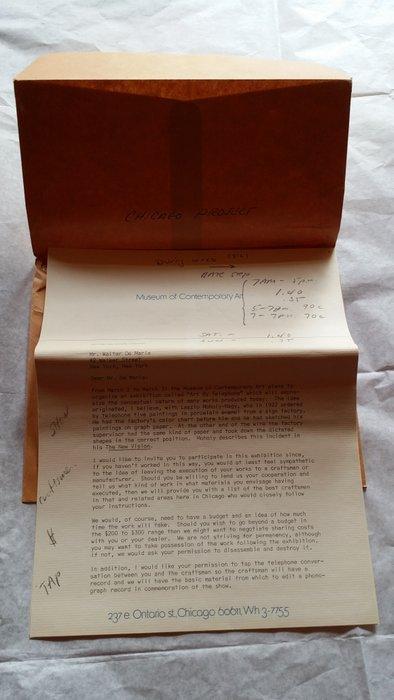 CHICAGO PROJECT
RATE STEP
7AM - 5PM
1.40
.35
5-7PM 90c
7- 70c
Museum of Contemporary Art
SAT. - 1.40
Mr. Walter De Maria
42 Walker Street
New York, New York
Dear Mr. De Maria:
From March 2 to March 31 the Museum of Contemporary Art plans to
organize an exhibition called "Art By Telephone" which will empha-
size the conceptual nature of many works produced today. The idea
originated, I believe, with Laszlo Moholy-Nagy, who in 1922 ordered
by telephone five paintings in porcelain enamel from a sign factory.
He had the factory's color chart before him and he had sketched his
paintings on graph paper. At the other end of the wire the factory
supervisor had the same kind of paper and took down the dictated
shapes in the correct position. Moholy describes this incident in
his The New Vision.
I would like to invite you to participate in this exhibition since,
if you haven't worked in this way, you would at least feel sympathetic
to the idea of leaving the execution of your works to a craftsman or
manufacturer. Should you be willing to lend us your cooperation and
tell us what kind of work in what materials you envisage having
executed, then we will provide you with a list of the best craftsmen
in that and related areas here in Chicago who would closely follow
your instructions.
We would, of course, need to have a budget and an idea of how much
time the work will take. Should you wish to go beyond a budget in
the $200 to $300 range then we might want to negotiate sharing costs
with you or your dealer. We are not striving for permanency, although
you may want to take possession of the work following the exhibition.
If not, we would ask your permission to disassemble and destroy it.
$
TAP
In addition, I would like your permission to tap the telephone conver-
sation between you and the craftsmen so the craftsman will have a
record and we will have the basic material from which to edit a phono-
graph record in commemoration of the show.
237 e. Ontario st., Chicago 60611, Wh 3-7755